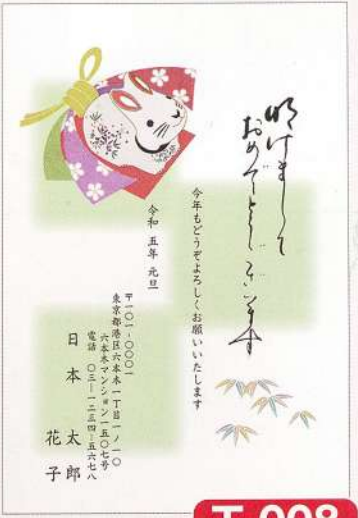 明けまして
おめでとうございます
今年もどうぞよろしくお願いいたします
令和 五年 元旦
〒一〇一-〇〇〇一
東京都港区六本木一丁目一ノ一〇
六本木マンション一五〇七号
電話 〇三―一二三四―五六七八
日本 太郎
花子
T-008